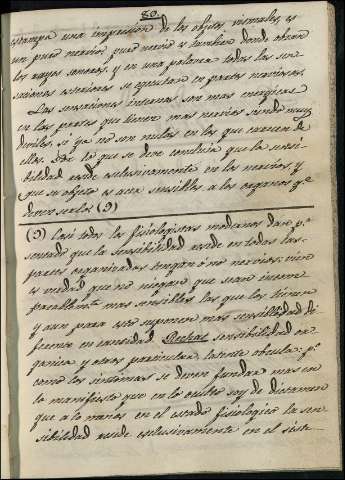 80.
estampa una impresion de los objetos visuales, es
un pues nervio; pues nervio es tambien donde obran
los rayos sonoros, y en una palabra todas las sen-
saciones exteriores se ejecutan en partes nerviosas.
Las sensaciones internas son mas energicas
en las partes que tienen mas nervios siendo muy
debiles, si ya no son nulas en los que carecen de
ellos. De lo que se deve concluir que la sensi-
bilidad reside esclusivamente en los nervios, y
que su objeto es acer sensibles a los organos qe
deven serlo. (9)
(9) Casi todos los fisiologistas modernos dan pr
sentado que la sensibilidad reside en todas las
partes organizadas tengan ó nó nervios: vien
es verdad que no niegan que sean incom-
parablemte mas sensibles las que los tienen
y aun para esto suponen mas sensibilidad di-
ferente en cantidad sensibilidad or-
ganica y otras particular, latente obscula: pr
como los sintomas se deven fundar mas en
lo manifiesto que en lo oculto soy de dictamen
que a lo menos en el estado fisiologico la sen-
sibilidad reside esclusivamente en el siste-